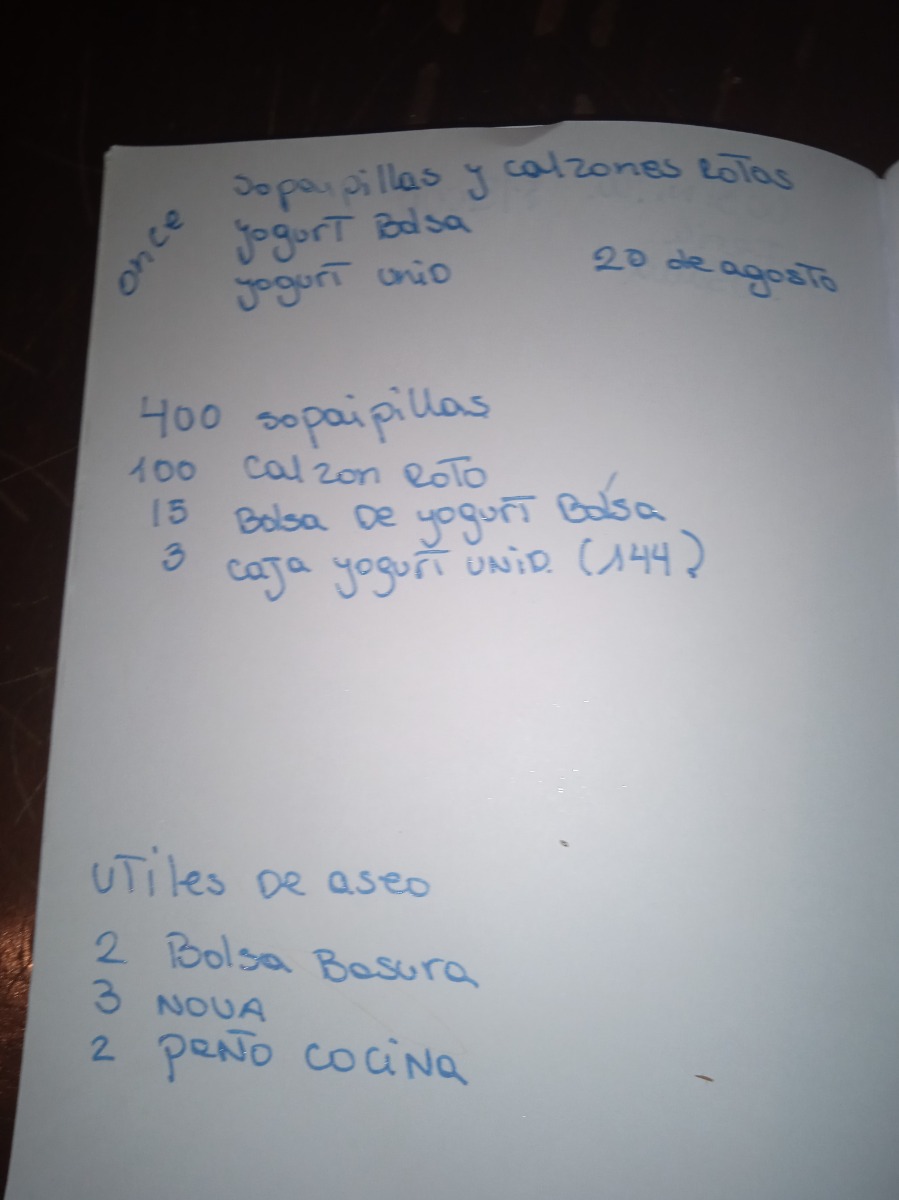 once
sopaipillas y calzones Rotos
yogurt Bolsa
yogurt unid
20 de agosto
400 sopaipillas
100 calzon Roto
15 Bolsa De yogurt Bolsa
3 caja yogurt UNID. (144)
UTiles De aseo
2 Bolsa Basura
3 NOVA
2 PAÑO COCINA